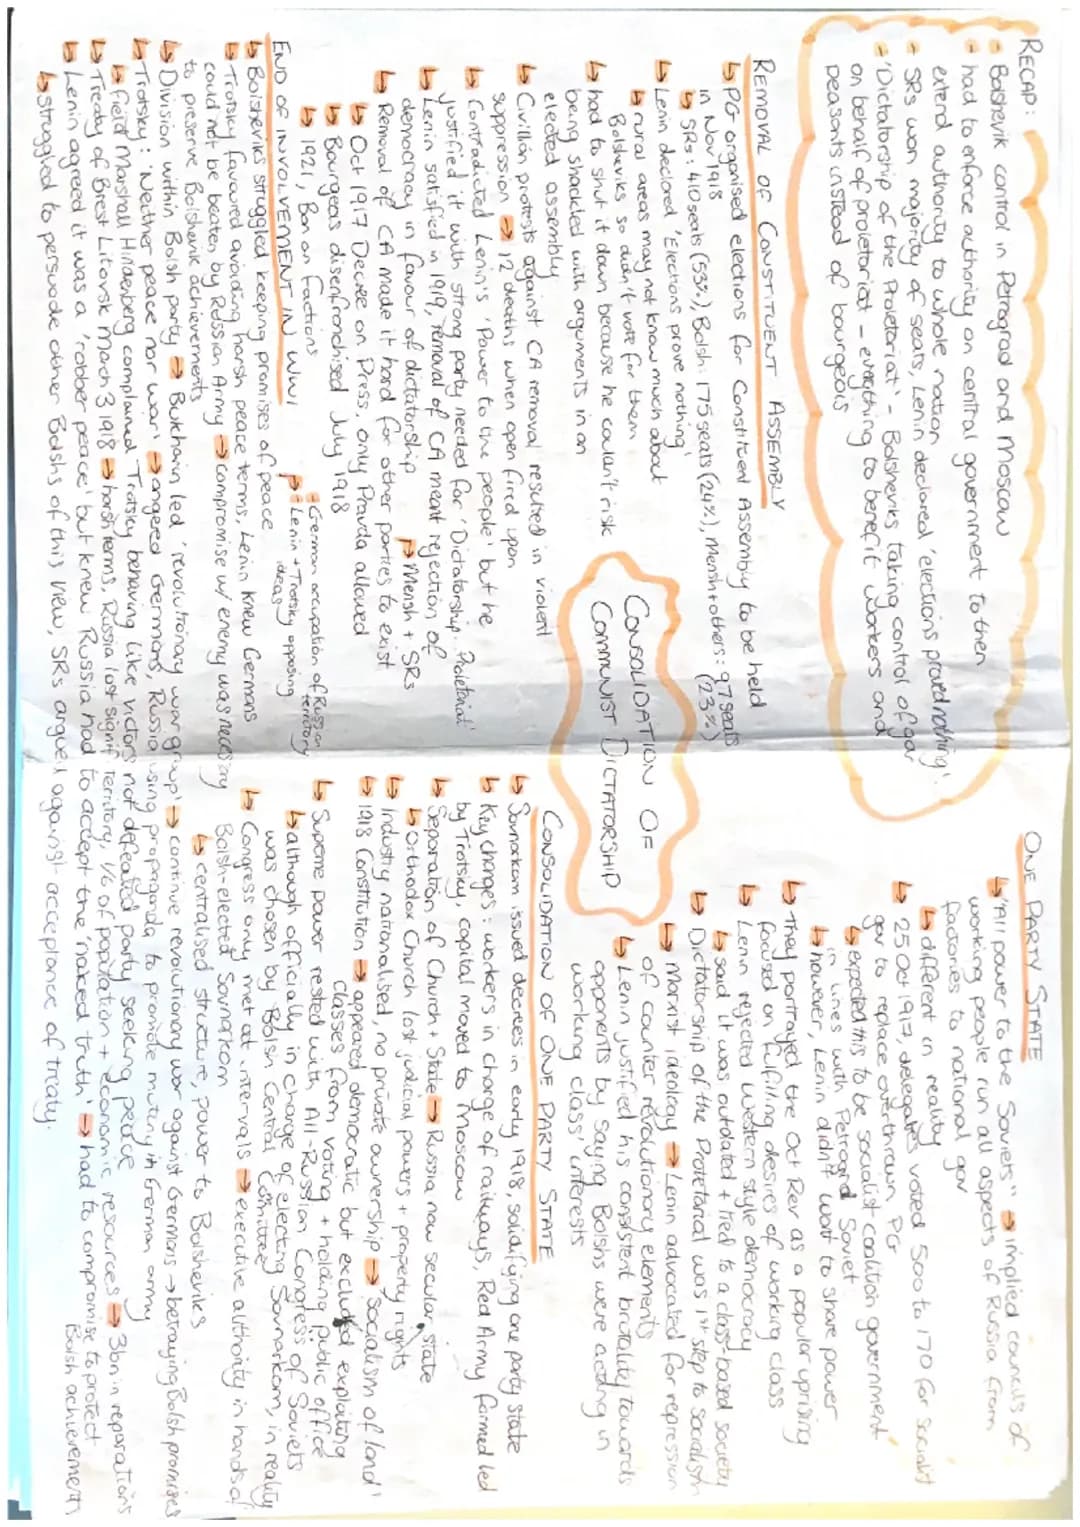 RECAP:
Bolshevik control in Petrograd and Moscow
had to enforce authority on central government to then
extend authority to whole nation
SRs won majority of seats, Lenin declared 'elections proved nothing'
'Dictatorship of the Proletariat' - Bolsheviks taking control of gov
on behalf of proletariat - everything to benefit workers and
peasants instead of bourgeois
REMOVAL OF CONSTITUENT ASSEMBLY
↳ PG organised elections for Constituent Assembly to be held
in Nov 1918
↳ SRs: 410 seats (53%), Bolsh: 175 seats (24%), Mensh + others: 97 seats
(23%)
↳ Lenin declared 'Elections prove nothing'
↳ rural areas may not know much about
Bolsheviks so didn't vote for them
↳ had to shut it down because he couldn't risk
being shackled with arguments in an
elected assembly
↳ Civilian protests against CA removal resulted in violent
suppression → 12 deaths when open fired upon
↳ Contradicted Lenin's 'Power to the people' but he
justified it with strong party needed for 'Dictatorship. Proletariat'
↳ Lenin satisfied in 1919, removal of CA meant rejection of
democracy in favour of dictatorship
↳ Mensh + SRs
↳ Removal of CA made it hard for other parties to exist
↳ Oct 1917 Decree on Press, only Pravda allowed
↳ Bourgeois disenfranchised July 1918
↳ 1921, Ban on factions
END OF INVOLVEMENT IN WW1
: German occupation of Russian
territory
: Lenin + Trotsky opposing
ideas
↳ Bolsheviks struggled keeping promises of peace
↳ Trotsky favoured avoiding harsh peace terms, Lenin knew Germans
could not be beaten by Russian Army → compromise w/ enemy was necessary
to preserve Bolshevik achievements
↳ Division within Bolsh party → Bukharin led 'revolutionary war group' → continue revolutionary war against Germans → betraying Bolsh promises
↳ Trotsky: 'Neither peace nor war' → angered Germans, Russia using propaganda to promote mutiny in German army
↳ field Marshall Hindenberg complained Trotsky behaving like victors not defeated party seeking peace
↳ Treaty of Brest Litovsk March 3 1918 → harsh terms, Russia lost signif territory, 1/6 of population + economic resources → 3bn in reparations
↳ Lenin agreed it was a 'robber peace' but knew Russia had to accept the 'naked truth' → had to compromise to protect
Bolsh achievements
↳ struggled to persuade other Bolshs of this view, SRs argued against acceptance of treaty.
CONSOLIDATION OF
COMMUNIST DICTATORSHIP
ONE PARTY STATE
↳ 'All power to the Soviets" → implied councils of
working people run all aspects of Russia from
factories to national gov
↳ different in reality
↳ 25 Oct 1917, delegates voted 500 to 170 for socialist
gov to replace overthrown PG
↳ expected this to be socialist coalition government
in lines with Petrograd Soviet
↳ however, Lenin didn't want to share power
↳ They portrayed the Oct Rev as a popular uprising
focused on fulfilling desires of working class
↳ Lenin rejected western style democracy
↳ said it was outdated + tied to a class-based society
↳ Dictatorship of the Proletariat was 1st step to socialism
↳ Marxist ideology → Lenin advocated for repression
of counter revolutionary elements
↳ Lenin justified his consistent brutality towards
opponents by saying Bolshs were acting in
working class' interests
CONSOLIDATION OF ONE PARTY STATE
↳ Sovnarkom issued decrees in early 1918, solidifying one party state
↳ Key changes: workers in charge of railways, Red Army formed led
by Trotsky, capital moved to Moscow
↳ Separation of Church + State → Russia now secular state
↳ Orthodox Church lost judicial powers + property rights
↳ Industry nationalised, no private ownership → 'Socialism of land'
↳ 1918 Constitution → appeared democratic but excluded exploiting
classes from voting + holding public office
↳ Supreme power rested with All-Russian Congress of Soviets
↳ although officially in charge of electing Sovnarkom, in reality
was chosen by Bolsh Central Committee
↳ Congress only met at intervals → executive authority in hands of
Bolsh-elected Sovnarkom
↳ centralised structure, power to Bolsheviks